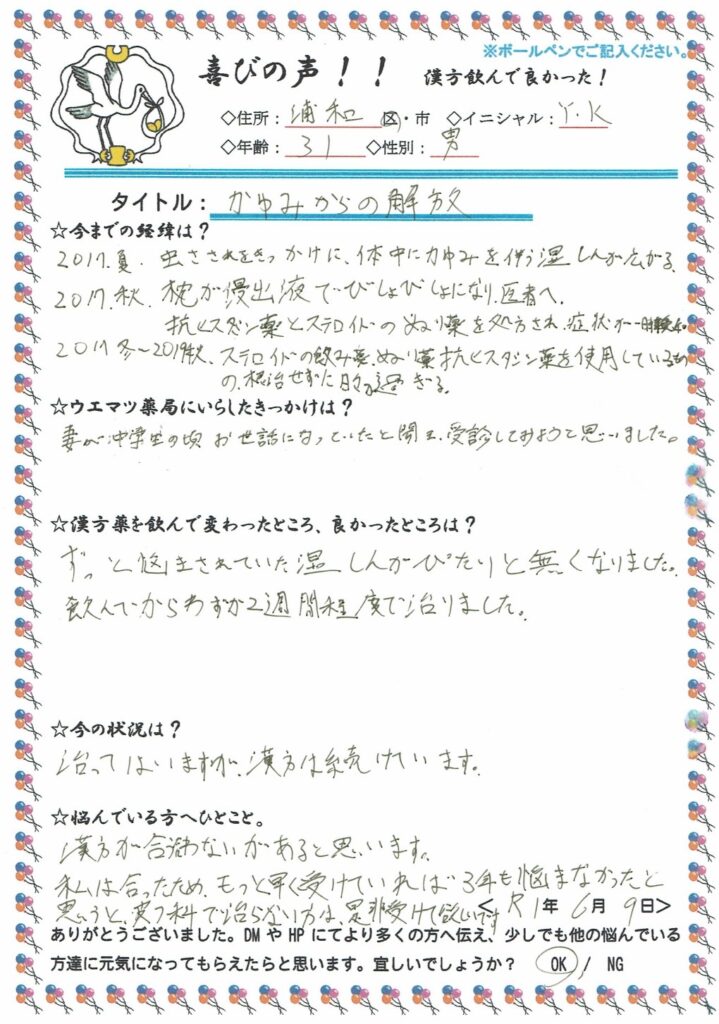 ※ボールペンでご記入ください。
喜びの声！！ 漢方飲んで良かった！
◇住所：浦和 区・市 ◇イニシャル：Y.K
◇年齢：31 ◇性別：男
タイトル：かゆみからの解放
☆今までの経緯は？
2017.夏. 虫さされをきっかけに、体中にかゆみを伴う湿しんが広がる。
2017.秋. 枕が浸出液でびしょびしょになり、医者へ。
抗ヒスタジン薬とステロイドのぬり薬を処方され、症状が一時
2017冬〜2019秋. ステロイドの飲み薬、ぬり薬、抗ヒスタジン薬を使用しているもの
の、根治せずに時が過ぎる。
☆ウエマツ薬局にいらしたきっかけは？
妻が中学生の頃お世話になっていたと聞き、受診してみようと思いました。
☆漢方薬を飲んで変わったところ、良かったところは？
ずっと悩まされていた湿しんがぴたりと無くなりました。
飲んでからわずか2週間程度で治りました。
☆今の状況は？
治ってはいますが、漢方は続けています。
☆悩んでいる方へひとこと。
漢方が合う合わないがあると思います。
私は合ったため、もっと早く受けていれば3年も悩まなかったと
思うと、皮フ科で治らない方は、是非受けて欲しいです
＜R1年6月9日＞
ありがとうございました。DMやHPにてより多くの方へ伝え、少しでも他の悩んでいる
方達に元気になってもらえたらと思います。宜しいでしょうか？ OK / NG